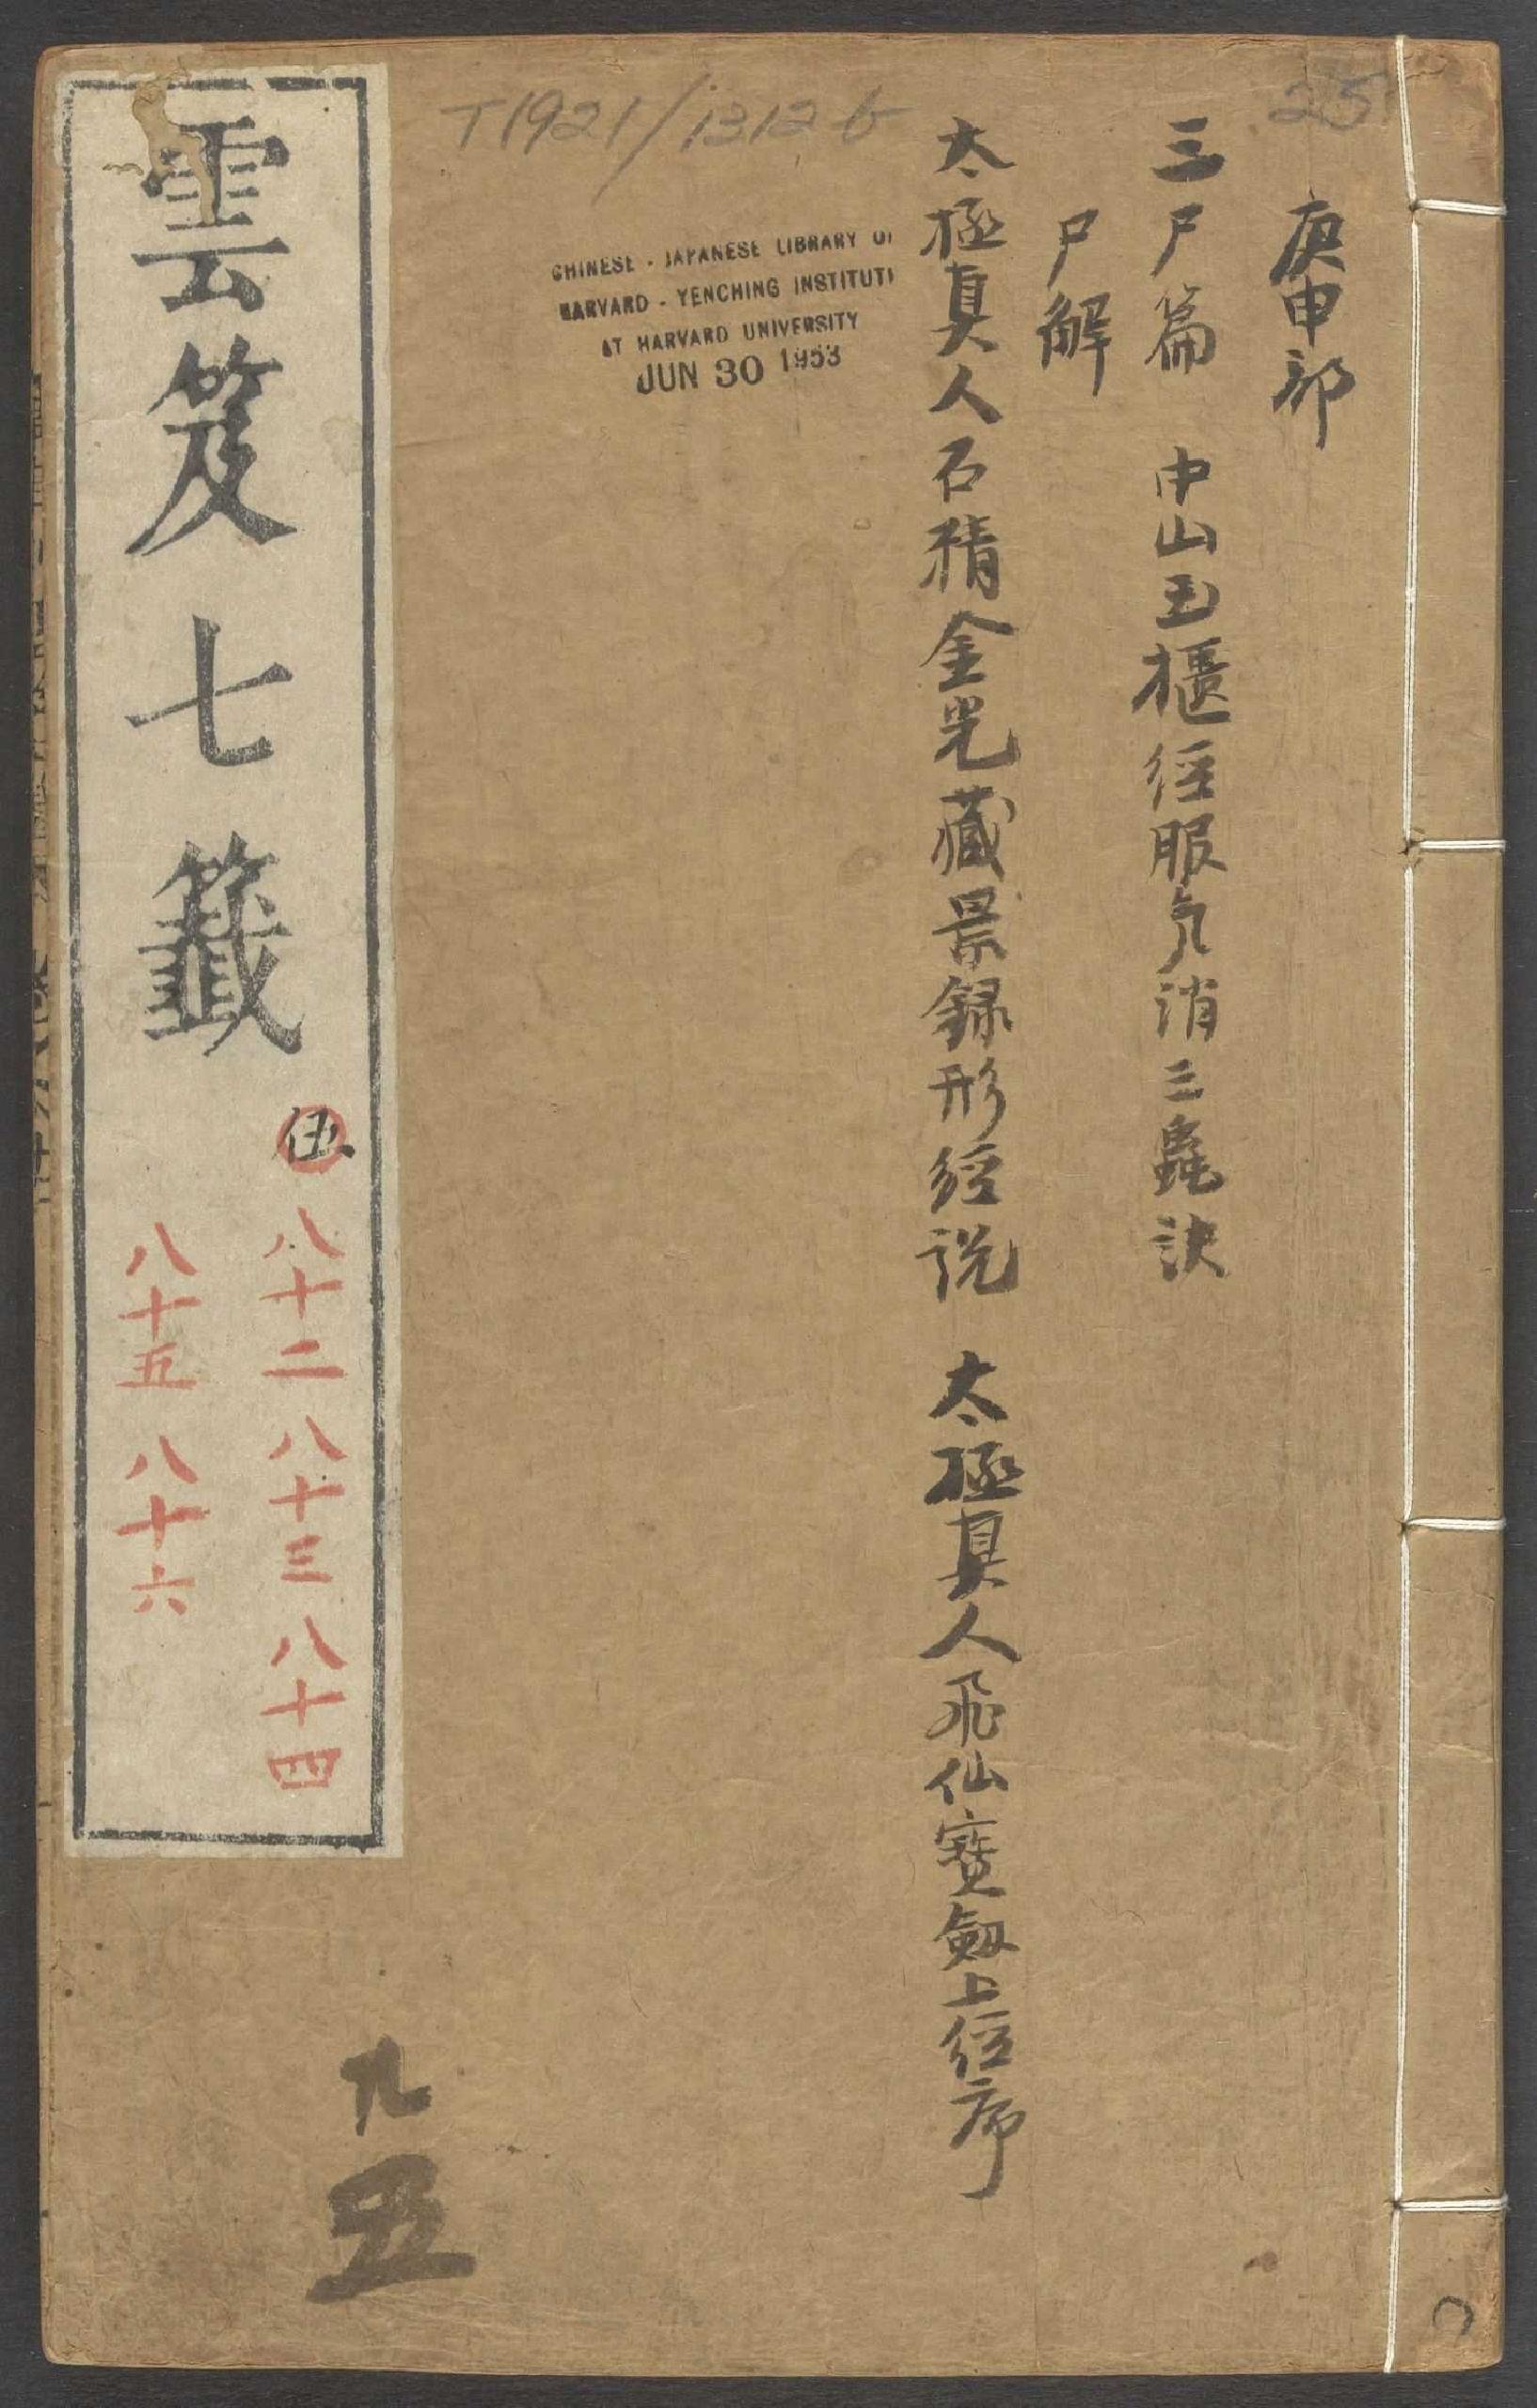 25
庚申部
三尸篇　中山玉櫃经服气消三蟲诀
尸解
太極真人石精金光藏景録形经说　太極真人飛仙寶劔上经序
T1921/1312b
CHINESE - JAPANESE LIBRARY OF
HARVARD - YENCHING INSTITUTE
AT HARVARD UNIVERSITY
JUN 30 1953
雲笈七籤
伍
八十二 八十三 八十四
八十五 八十六
九
五